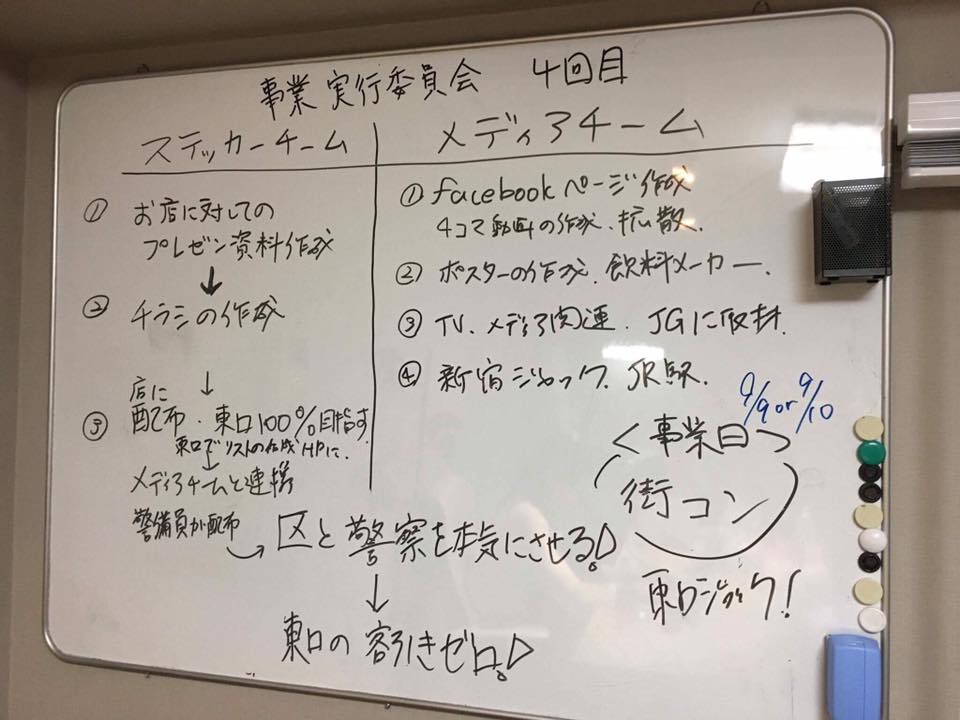 事業実行委員会 4回目
ステッカーチーム
① お店に対しての
プレゼン資料作成
↓
② チラシの作成
↓
店に
③ 配布・東口100%目指す
東口でリストの作成HPに
↓
メディアチームと連携
警備員が配布
→ 区と警察を本気にさせる!
↓
東口の客引きゼロ!
メディアチーム
① facebookページ作成
4コマ動画の作成、拡散、
② ポスターの作成、飲料メーカー、
③ TV、メディア関連、JGに取材、
④ 新宿ジャック、JR駅、
9/9 or 9/10
<事業日>
街コン
東口ジャック!